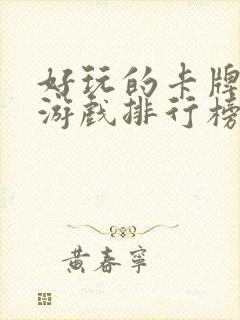 好玩的卡牌
游戏排行榜
黄春宁